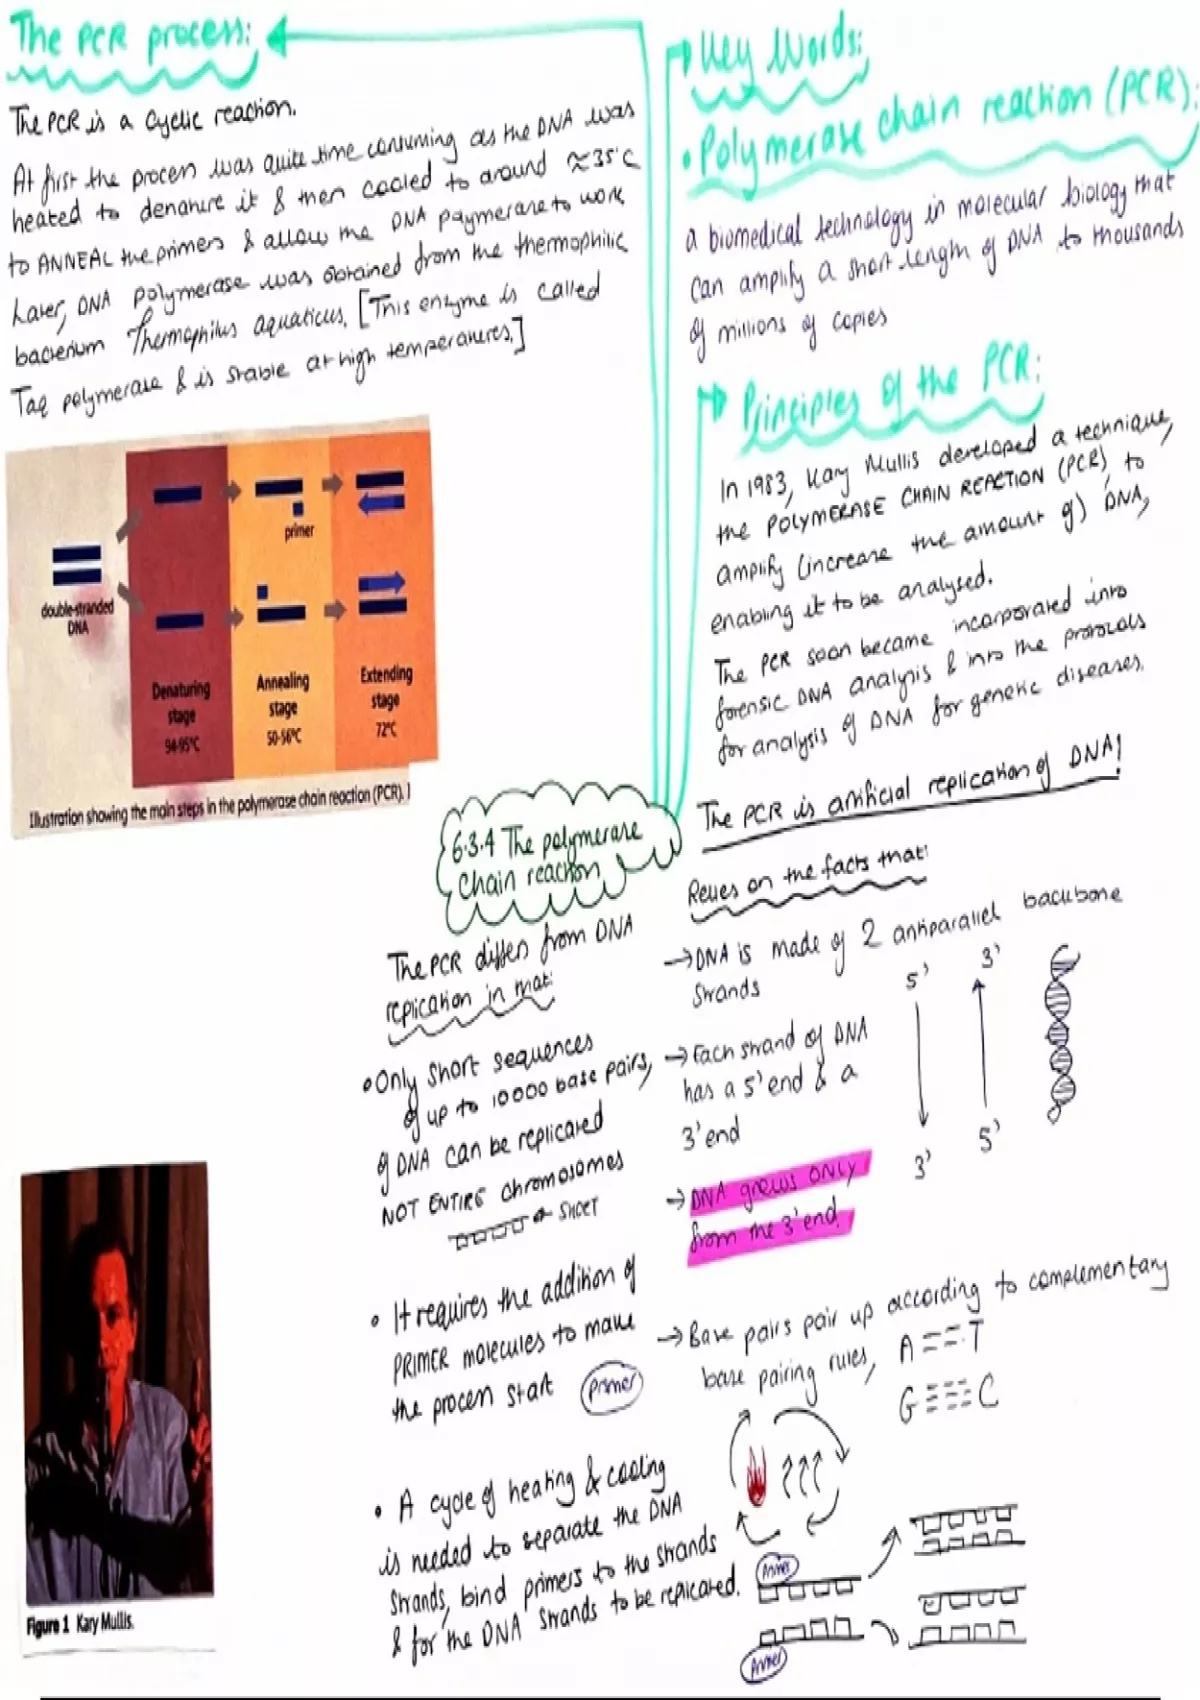 The PCR process:
The PCR is a cyclic reaction.
At first the process was quite time consuming as the DNA was
heated to denature it & then cooled to around ≈35°C
to ANNEAL the primers & allow the DNA polymerase to work
Later, DNA polymerase was obtained from the thermophilic
bacterium Thermophilus aquaticus. [This enzyme is called
Taq polymerase & is stable at high temperatures.]
double-stranded
DNA
primer
Denaturing
stage
94-95°C
Annealing
stage
50-56°C
Extending
stage
72°C
Illustration showing the main steps in the polymerase chain reaction (PCR).
Key Words:
• Polymerase chain reaction (PCR):
a biomedical technology in molecular biology that
can amplify a short length of DNA to thousands
of millions of copies
Principles of the PCR:
In 1983, Kary Mullis developed a technique,
the POLYMERASE CHAIN REACTION (PCR), to
amplify (increase the amount of) DNA,
enabling it to be analysed.
The PCR soon became incorporated into
forensic DNA analysis & into the protocols
for analysis of DNA for genetic diseases.
The PCR is artificial replication of DNA!
6.3.4 The polymerase
chain reaction
Relies on the facts that:
→ DNA is made of 2 antiparallel backbone
strands
→ Each strand of DNA
has a 5' end & a
3' end
5' 3'
3' 5'
→ DNA grows ONLY
from the 3' end.
→ Base pairs pair up according to complementary
base pairing rules,
A = = T
G ≡ ≡ C
The PCR differs from DNA
replication in that:
• Only short sequences
of up to 10000 base pairs,
of DNA can be replicated
NOT ENTIRE chromosomes
← SHORT
• It requires the addition of
PRIMER molecules to make
the process start
primer
• A cycle of heating & cooling
is needed to separate the DNA
strands, bind primers to the strands
& for the DNA strands to be replicated.
Primer
Primer
Figure 1 Kary Mullis.